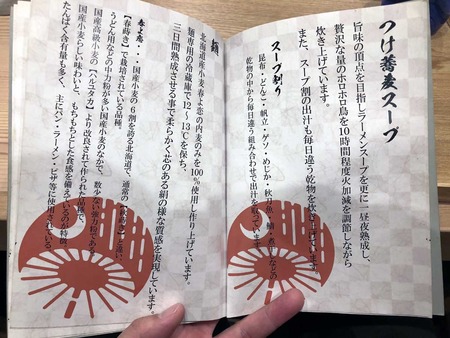 つけ蕎麦スープ
旨味の頂点を目指しラーメンスープを更に一昼夜熟成し、
贅沢な量のホロホロ鳥を10時間程度火加減を調節しながら
炊き上げています。
また、スープ割の出汁も毎日違う乾物を炊き上げています。
スープ割り
昆布・どんこ・帆立・ゲソ・めじか・秋刀魚・鯖・煮干しなどの
乾物の中から毎日違う組み合わせで出汁を取っています。
麺
北海道産小麦春よ恋の内麦のみを100%使用し作り上げています。
麺専用の冷蔵庫で12〜13℃を保ち、
三日間熟成させる事で柔らかく芯のある絹の様な質感を実現しています。
春よ恋・・・国産小麦の6割を誇る北海道で、通常の【秋蒔き】と違い、
【春蒔き】で栽培されている品種。
うどん用などの中力粉が多い国産小麦のなかで、数少ない強力粉である。
国産高級小麦の【ハルユタカ】より改良されて作られた品種で、
国産小麦らしい味わいと、もちもちとした食感を備えているのが特徴。
たんぱく含有量も多く、主にパン・ラーメン・ピザ等に使用されている。